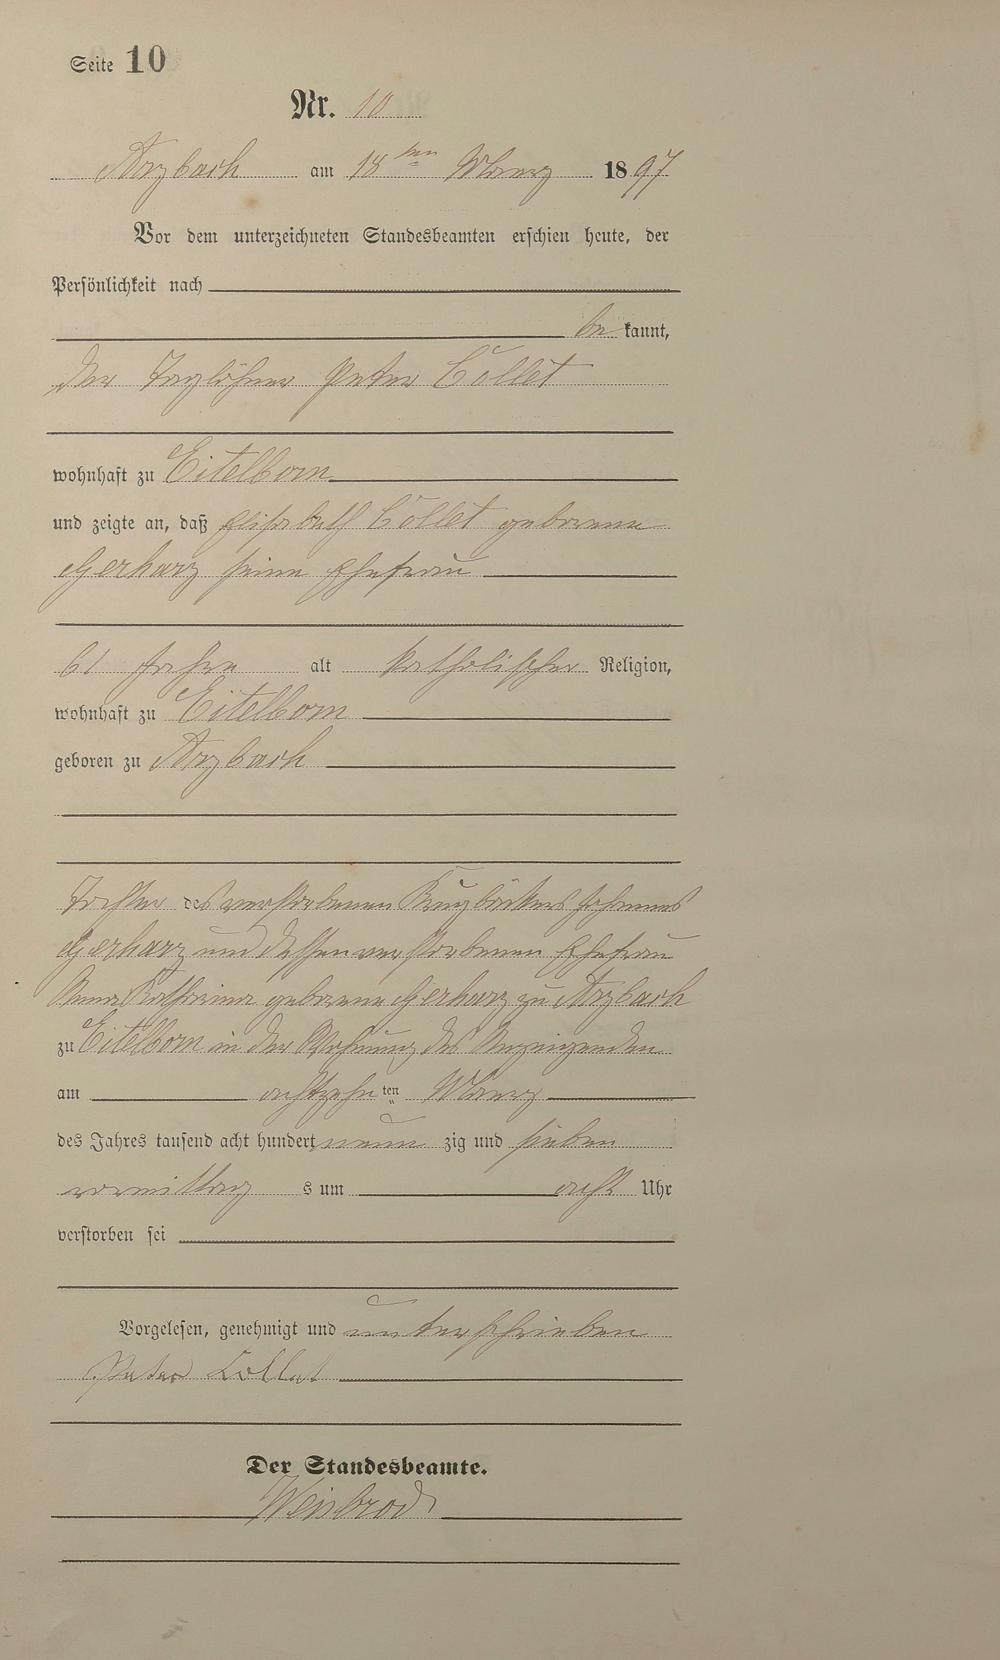 Seite 10
Nr. 10
Arzbach am 18ten Maerz 1897
Vor dem unterzeichneten Standesbeamten erschien heute, der
Persönlichkeit nach
be kannt,
der Taglöhner Peter Collet
wohnhaft zu Eitelborn
und zeigte an, daß Elisabeth Collet geborene
Gerharz seine Ehefrau
61 Jahre alt katholischer Religion,
wohnhaft zu Eitelborn
geboren zu Arzbach
Tochter des verstorbenen Krugbäckers Johannes
Gerharz und dessen verstorbenen Ehefrau
Anna Katharina geborene Gerharz zu Arzbach
zu Eitelborn in der Wohnung des Anzeigenden
am achtzehn ten Maerz
des Jahres tausend acht hundert neun zig und sieben
vormittag s um acht Uhr
verstorben sei
Vorgelesen, genehmigt und unterschrieben
Peter Collet
Der Standesbeamte.
Weisbrod